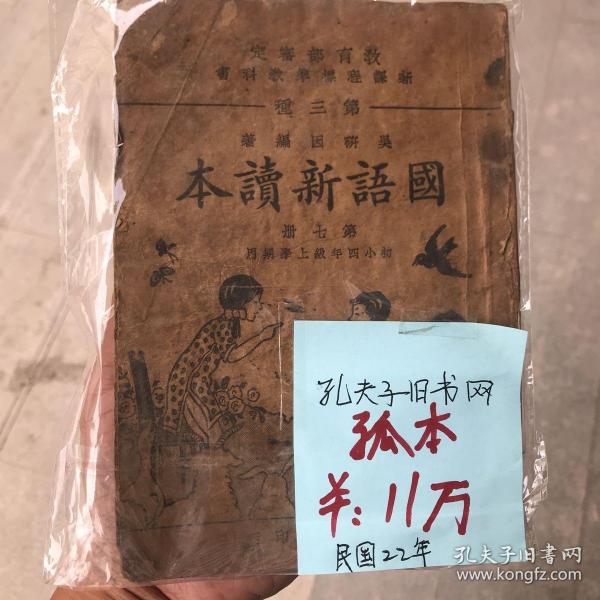 教育部審定
新課程標準教科書
第三種
吳研因編著
國語新讀本
第七冊
初小四年級上學期用
孔夫子旧书网
孤本
¥:11万
民国22年
印
孔夫子旧书网
www.kongfz.com